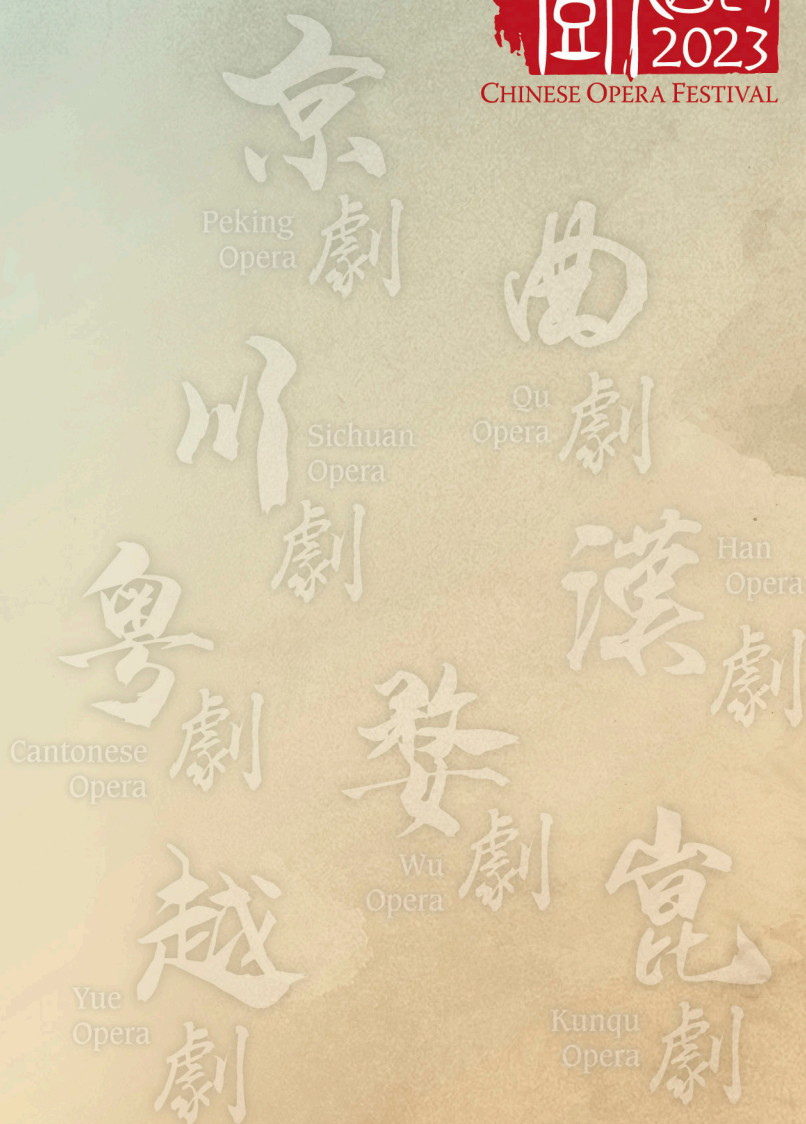 2023
CHINESE OPERA FESTIVAL
京劇
Peking
Opera
曲劇
Qu
Opera
川劇
Sichuan
Opera
漢劇
Han
Opera
粵劇
Cantonese
Opera
婺劇
Wu
Opera
越劇
Yue
Opera
崑劇
Kunqu
Opera